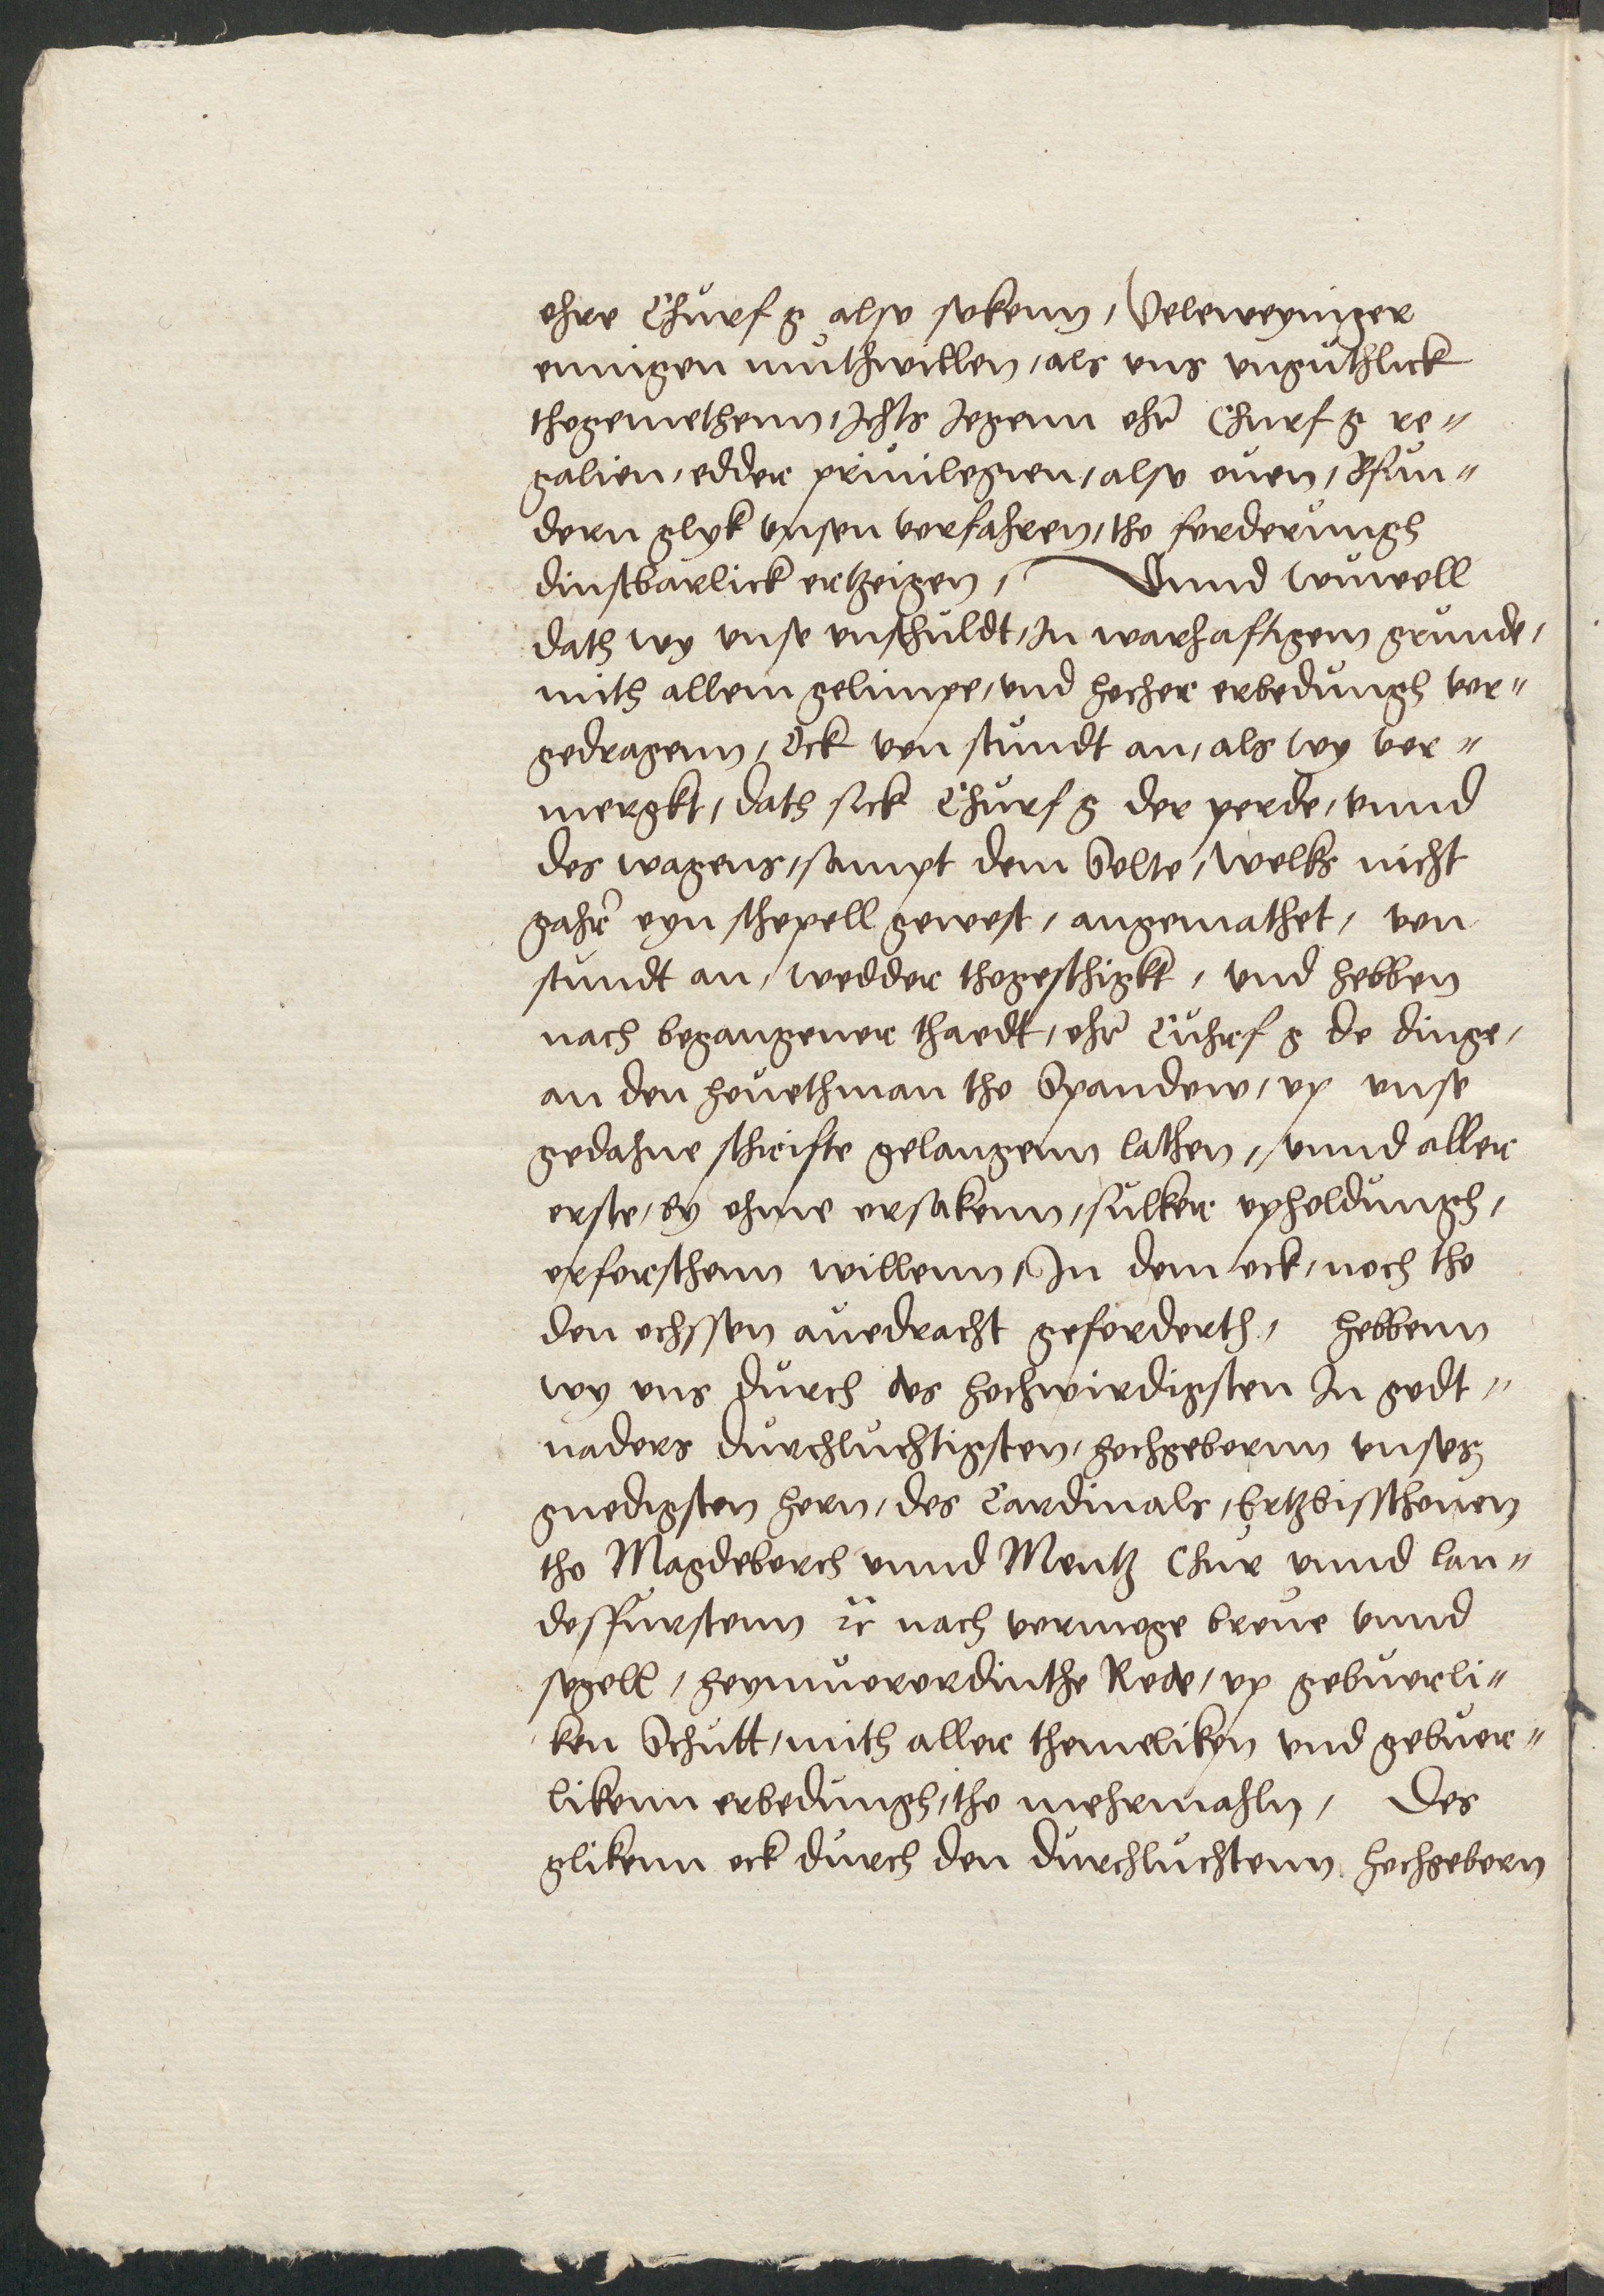 ehre Churf g also sokenn, Veleweyniger
ennigen muthwillen, als vns vnguthlick
thogemethenn, Ichts Jegenn ehr Churf g re„
galien, edder priuilegien, also ouen, Bsun„
dern glyk vnsen vorfahren, tho forderungh
dinstbarlick ertzeigen, Vnnd wuwoll
dath wy vnse vnschuldt, In warhaftigem grunde,
mith allem gelimpe, vnd hocher erbedungh vor„
gedragenn, Ock von stundt an, als wy vor„
mergkt, dath sick Churf g der perde, vnnd
des wagens, sampt dem Solte, welks nicht
gahr eyn schepell gewest, angemathet, von
stundt an, wedder thogeschigkt, vnd hebben
nach begangener thaedt, ehr Cuhrf g de dinge,
an den houethman tho Spandow, vp vnse
gedahne schrifte gelangenn lathen, vnnd aller
erste, by ohme orsakenn, sulker vpholdungh,
erforschenn willenn, In dem ock, noch tho
den ochssen auedracht geforderth, hebbenn
wy vns durch des hochwirdigsten In godt„
vaders durchluchtigsten, hochgebornn vnses
gnedigsten hern, des Cardinals, Ertzbisschouen
tho Magdeborch vnnd Mentz Chur vnnd lan„
desfurstenn ꝛc nach vermoge breue vnnd
segell, heymuerordinthe Rede, vp geburli„
ken Schutt, mith aller themeliken vnd gebuer„
likenn erbedungh, tho mehrmahln, Des
glikenn ock durch den durchluchtenn hochgeborn